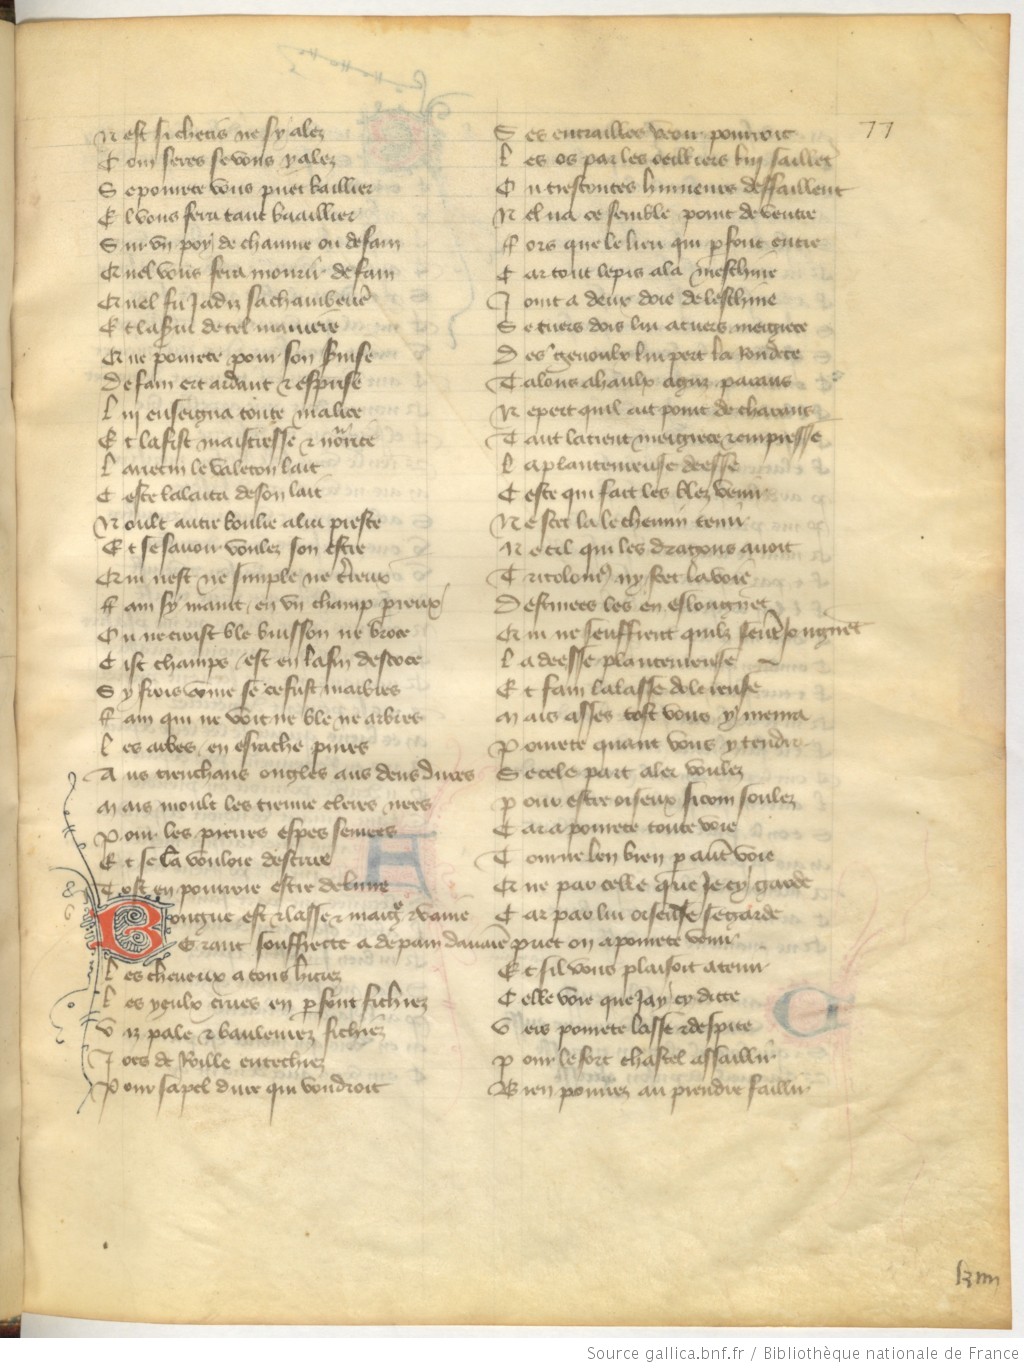 77
N est si chetis ne sy alez
C om seres se vous y alez
S e pourete vous puet baillier
E l vous fera tant baaillier
S ur vn poy de chaume ou de fain
Qu uel vous fera mourir de fain
Qu uel fu jadiz sa chamberiere
E t lassui de tel maniere
Qu ue pourete pour son seruise
D e fain ert ardant & esprise
L ui enseigna toute malice
E t la fist maistresse & norrice
L arrecin le valeton lait
C este lalaita de son lait
N oult autre boulie a lui pestre
E t se sauoir voulez son estre
Qu ui nest ne simple ne
F ain sy maint en vn champ pierreux
O u ne croist ble buisson ne broce
C ist champs est en la fin descoce
S y frois come se ce fust marbres
F ain qui ne voit ne ble ne arbres
L es erbes en esrache pures
A us trenchans ongles aus dens dures
M ais moult les treuue cleres nees
P our les pierres espes semees
E t se la vouloie descrire
T ost en pourroie estre deliure
L ongue est & lasse & maigre & vaine
G rant souffrette a de pain dauaine
L es cheueux a tous
L es yeulx crues en parfont fichiez
V iz pale & baulieurez
J oes de Roille entechiez
P our sa pel dure qui voudroit
S es entrailles veoir pourroit
L es os par les oeilliers lui saillent
O u trestoutes humeurs deffaillent
N el na ce semble point de ventre
F ors que le lieu qui parfont entre
C ar tout le pis a la meschine
J oint a deux doie de leschine
S e tuers dois lui a
D es genoulx lui pert la Rondece
T alons a haulx aguz parans
N e pert quil ait point de char ans
T ant la tient meigrece & empresse
L a plantureuse deesse
C este qui fait les blez venir
N e scet la le chemin tenir
N e cil qui les dragons auoit
T ricolones ny scet la voie
D estinees les en eslongnent
Qu ui ne seuffrent quilz
L a deesse plantureuse
E t fain la lasse
M ais asses tost vous y menra
P ourete quant vous y tendra
S e cele part aler voulez
P our estre oiseux si com soulez
C ar a pourete toute voie
T ourne len bien par autre voie
Qu ue par celle que Je cy garde
C ar par lui oiseuse se garde
Puet on a pourete venir
E t sil vous plaisoit a tenir
C elle voie que Jay cy dicte
V ers pourete lasse & despite
P our le fort chastel assaillir
B ien pourrez au prendre faillir